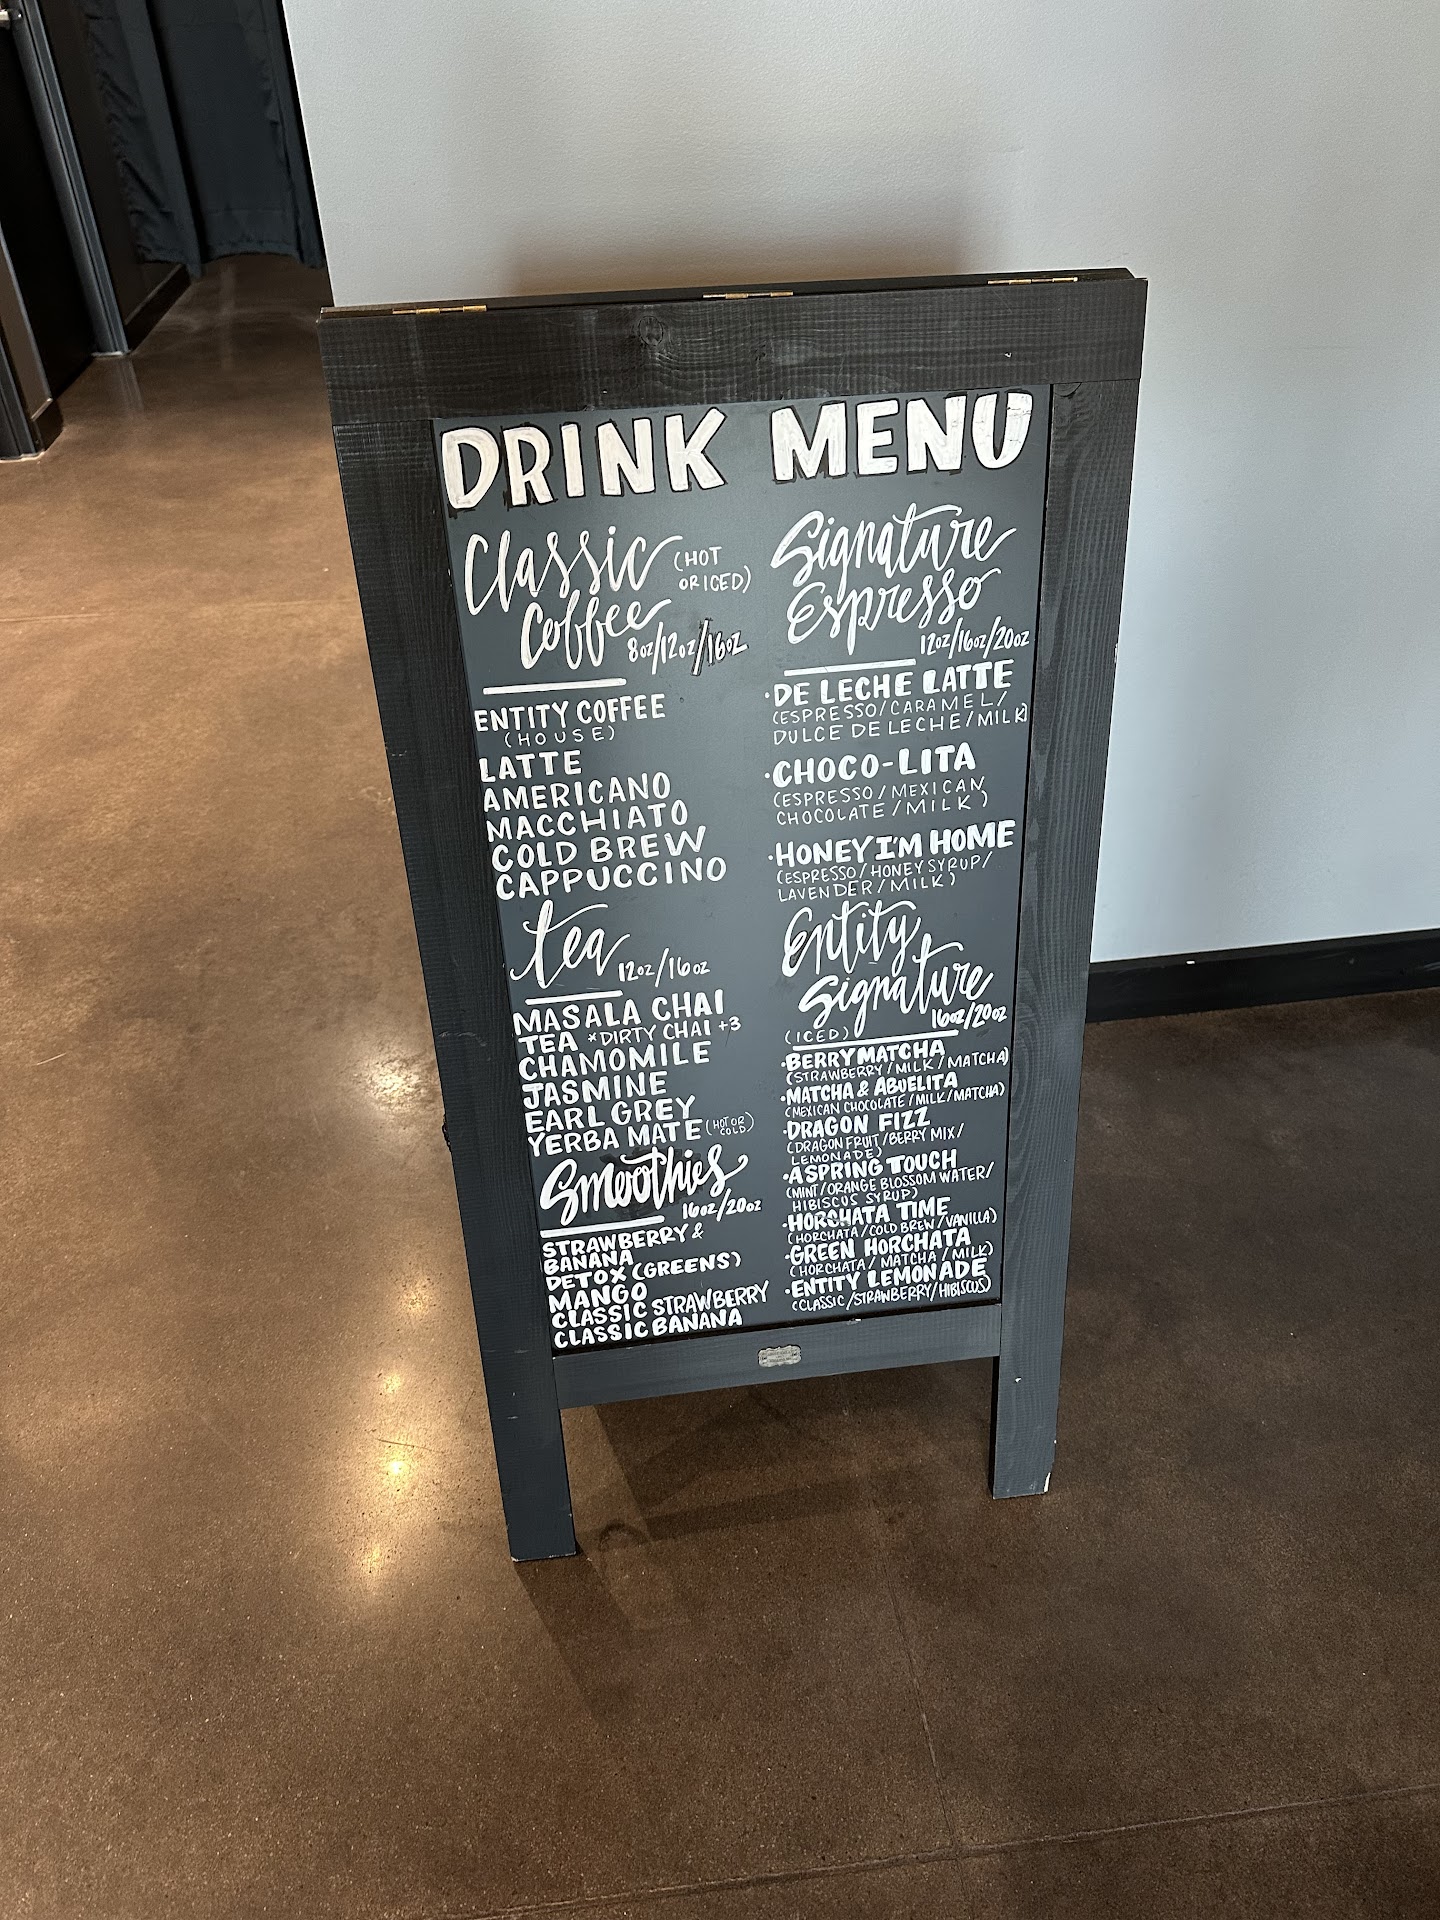 DRINK MENU
Classic (HOT
OR ICED)
Coffee
8oz/12oz/16oz
ENTITY COFFEE
(HOUSE)
LATTE
AMERICANO
MACCHIATO
COLD BREW
CAPPUCCINO
tea 12oz/16oz
MASALA CHAI
TEA *DIRTY CHAI +3
CHAMOMILE
JASMINE
EARL GREY
YERBA MATE (HOT OR
COLD)
Smoothies
16oz/20oz
STRAWBERRY &
BANANA
DETOX (GREENS)
MANGO
CLASSIC STRAWBERRY
CLASSIC BANANA
Signature
Espresso
12oz/16oz/20oz
·DE LECHE LATTE
(ESPRESSO/CARAMEL/
DULCE DE LECHE/MILK)
·CHOCO-LITA
(ESPRESSO/MEXICAN
CHOCOLATE/MILK)
·HONEY I'M HOME
(ESPRESSO/HONEY SYRUP/
LAVENDER/MILK)
Entity
Signature
(ICED) 16oz/20oz
·BERRY MATCHA
(STRAWBERRY/MILK/MATCHA)
·MATCHA & ABUELITA
(MEXICAN CHOCOLATE/MILK/MATCHA)
·DRAGON FIZZ
(DRAGON FRUIT/BERRY MIX/
LEMONADE)
·A SPRING TOUCH
(MINT/ORANGE BLOSSOM WATER/
HIBISCUS SYRUP)
·HORCHATA TIME
(HORCHATA/COLD BREW/VANILLA)
·GREEN HORCHATA
(HORCHATA/MATCHA/MILK)
·ENTITY LEMONADE
(CLASSIC/STRAWBERRY/HIBISCUS)